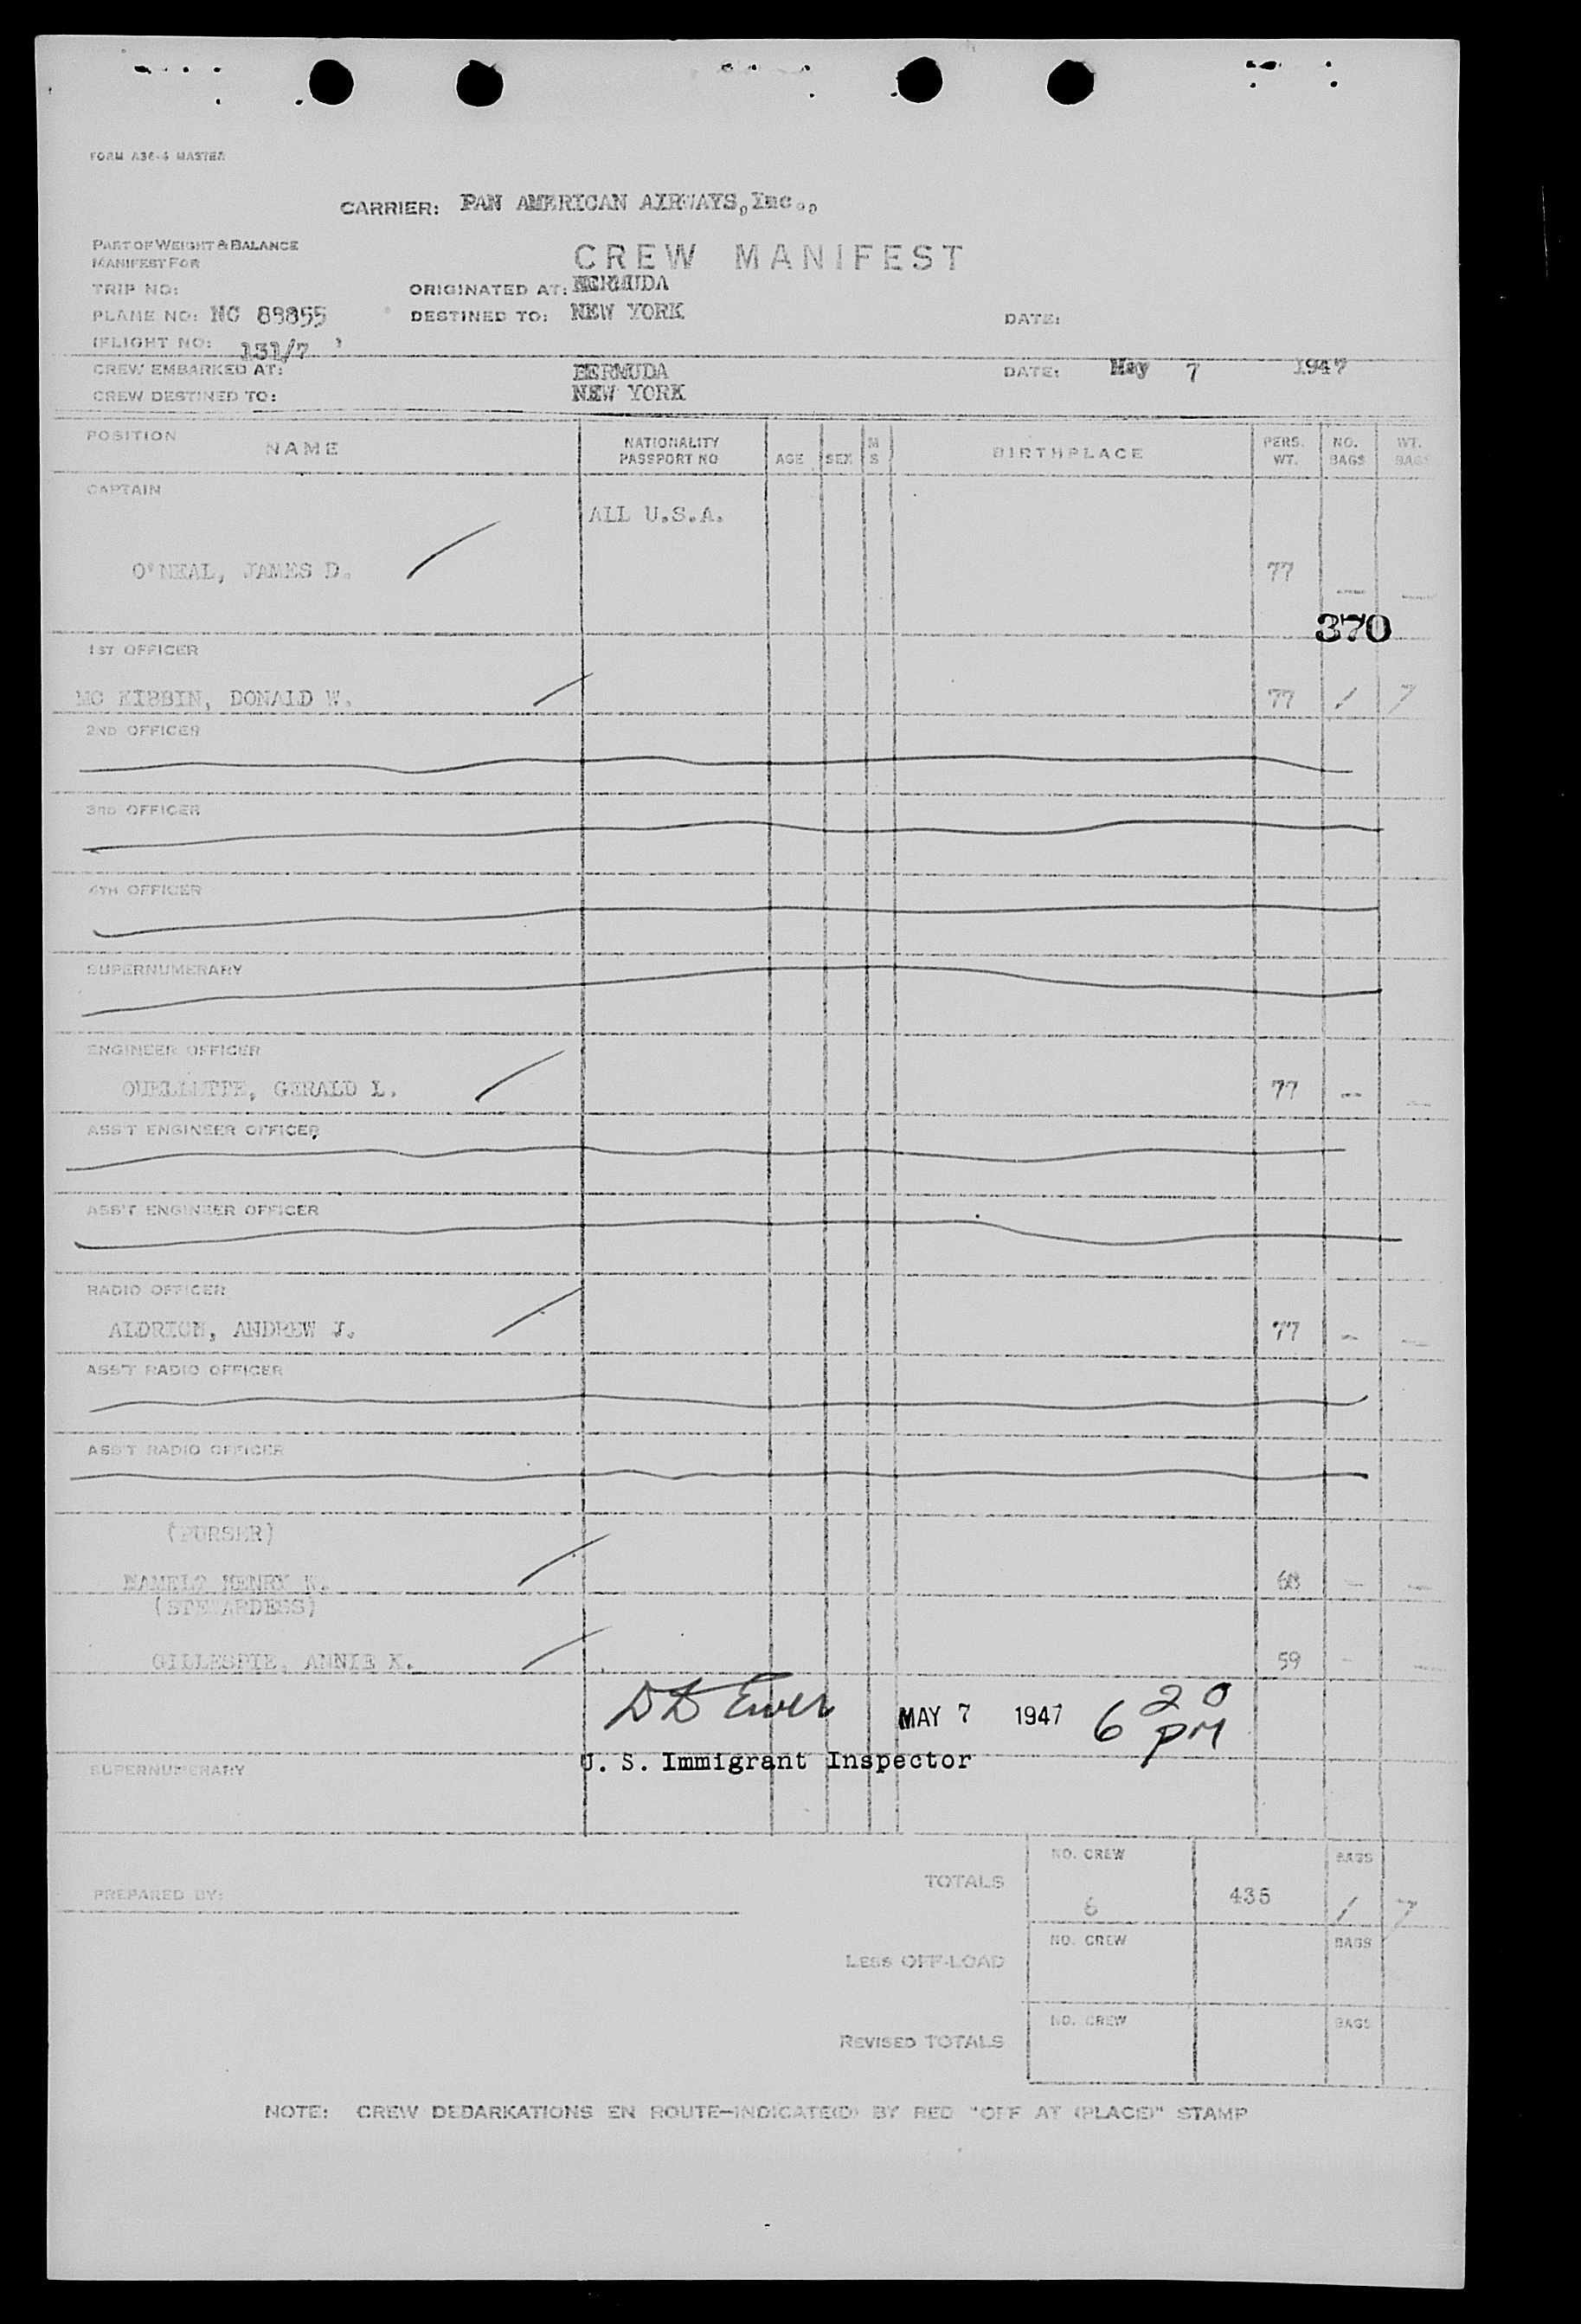 FORM A36-4 MASTER
CARRIER: PAN AMERICAN AIRWAYS, Inc.,
PART OF WEIGHT & BALANCE
MANIFEST FOR
CREW MANIFEST
TRIP NO: ORIGINATED AT: BERMUDA
PLANE NO: NC 88855 DESTINED TO: NEW YORK DATE:
(FLIGHT NO: 131/7 )
CREW EMBARKED AT: BERMUDA DATE: May 7 1947
CREW DESTINED TO: NEW YORK
POSITION NAME NATIONALITY PASSPORT NO AGE SEX M S BIRTHPLACE PERS. WT. NO. BAGS WT. BAGS
CAPTAIN
ALL U.S.A.
O'NEAL, JAMES D. 77 — —
370
1ST OFFICER
MC KIBBIN, DONALD W. 77 1 7
2ND OFFICER
3RD OFFICER
4TH OFFICER
SUPERNUMERARY
ENGINEER OFFICER
OUELLETTE, GERALD L. 77 — —
ASS'T ENGINEER OFFICER
ASS'T ENGINEER OFFICER
RADIO OFFICER
ANDREW J. 77 — —
ASS'T RADIO OFFICER
ASS'T RADIO OFFICER
(PURSER)
HENRY 68 — —
(STEWARDESS)
GILLESPIE, ANNIE K. 59 - —
MAY 7 1947 6 20 PM
U. S. Immigrant Inspector
SUPERNUMERARY
TOTALS NO. CREW 6 435 BAGS 1 7
PREPARED BY:
LESS OFF-LOAD NO. CREW BAGS
REVISED TOTALS NO. CREW BAGS
NOTE: CREW DEBARKATIONS EN ROUTE—INDICATE(D) BY RED "OFF AT (PLACE)" STAMP